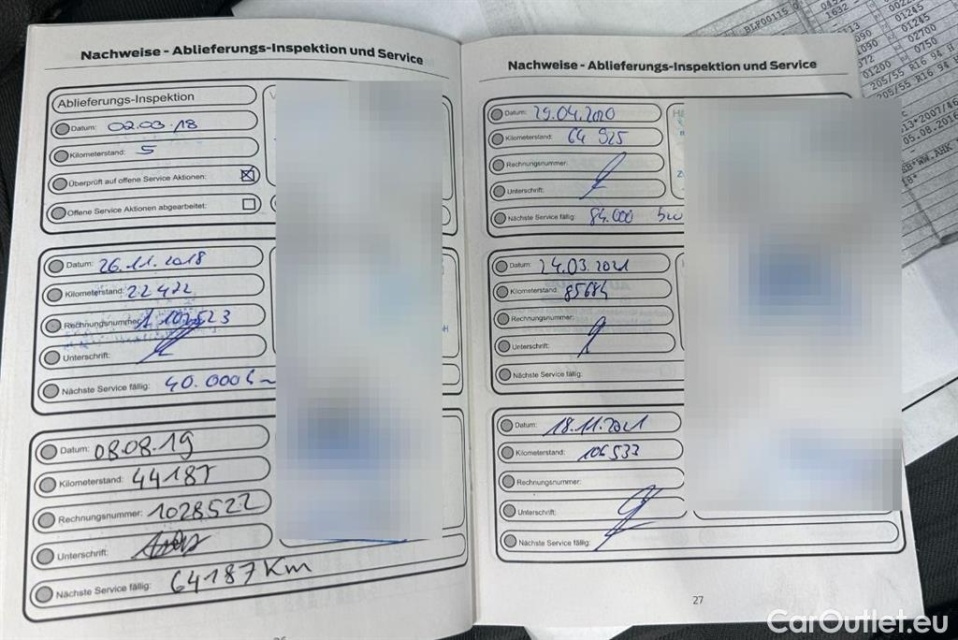 Nachweise - Ablieferungs-Inspektion und Service
Ablieferungs-Inspektion
Datum: 02.03.18
Kilometerstand: 5
Überprüft auf offene Service Aktionen:
Offene Service Aktionen abgearbeitet:
Datum: 26.11.2018
Kilometerstand: 22422
Rechnungsnummer: 1102523
Unterschrift:
Nächste Service fällig: 40.000
Datum: 08.08.19
Kilometerstand: 44187
Rechnungsnummer: 1028522
Unterschrift:
Nächste Service fällig: 64187 Km
Nachweise - Ablieferungs-Inspektion und Service
Datum: 29.04.2020
Kilometerstand: 64 925
Rechnungsnummer:
Unterschrift:
Nächste Service fällig: 84.000
Datum: 24.03.2021
Kilometerstand: 85684
Rechnungsnummer:
Unterschrift:
Nächste Service fällig:
Datum: 18.11.2021
Kilometerstand: 106533
Rechnungsnummer:
Unterschrift:
Nächste Service fällig:
27
1632
01245
01245
02700
01200
0750
205/55 R16 94 H
205/55 R16 94 H
05.08.2016
CarOutlet.eu